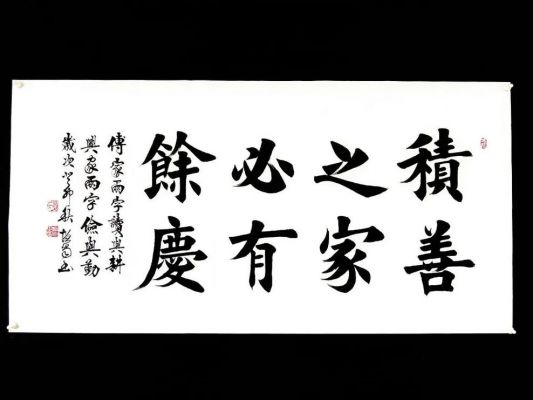 積善
之家
必有
餘慶
傳家兩字讀與耕
興家兩字儉與勤
歲次癸卯秋